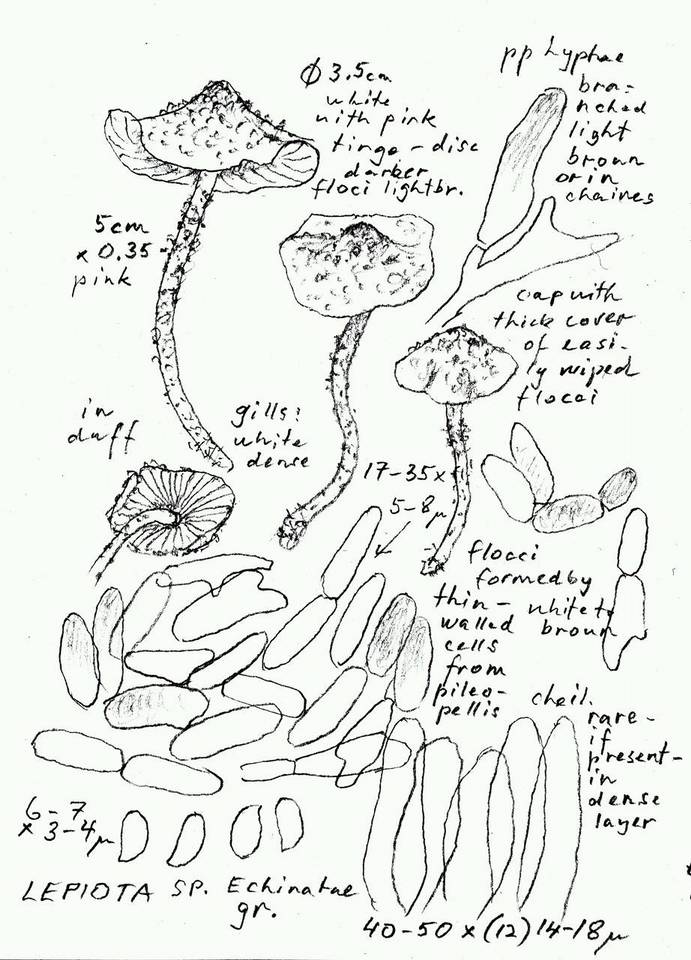 φ 3.5cm
white
with pink
tinge - disc
darker
floci lightbr.
pp hyphae
bra=
nched
light
brown
or in
chaines
5cm
x 0.35
pink
cap with
thick cover
of easi-
ly wiped
flocci
in
duff
gills:
white
dense
17-35 x
5-8 μ
flocci
formed by
thin - white to
walled brown
cells
from
pileo-
pellis
cheil.
rare -
if
present -
in
dense
layer
6-7
x 3-4 μ
LEPIOTA SP. Echinatae
gr.
40-50 x (12) 14-18 μ